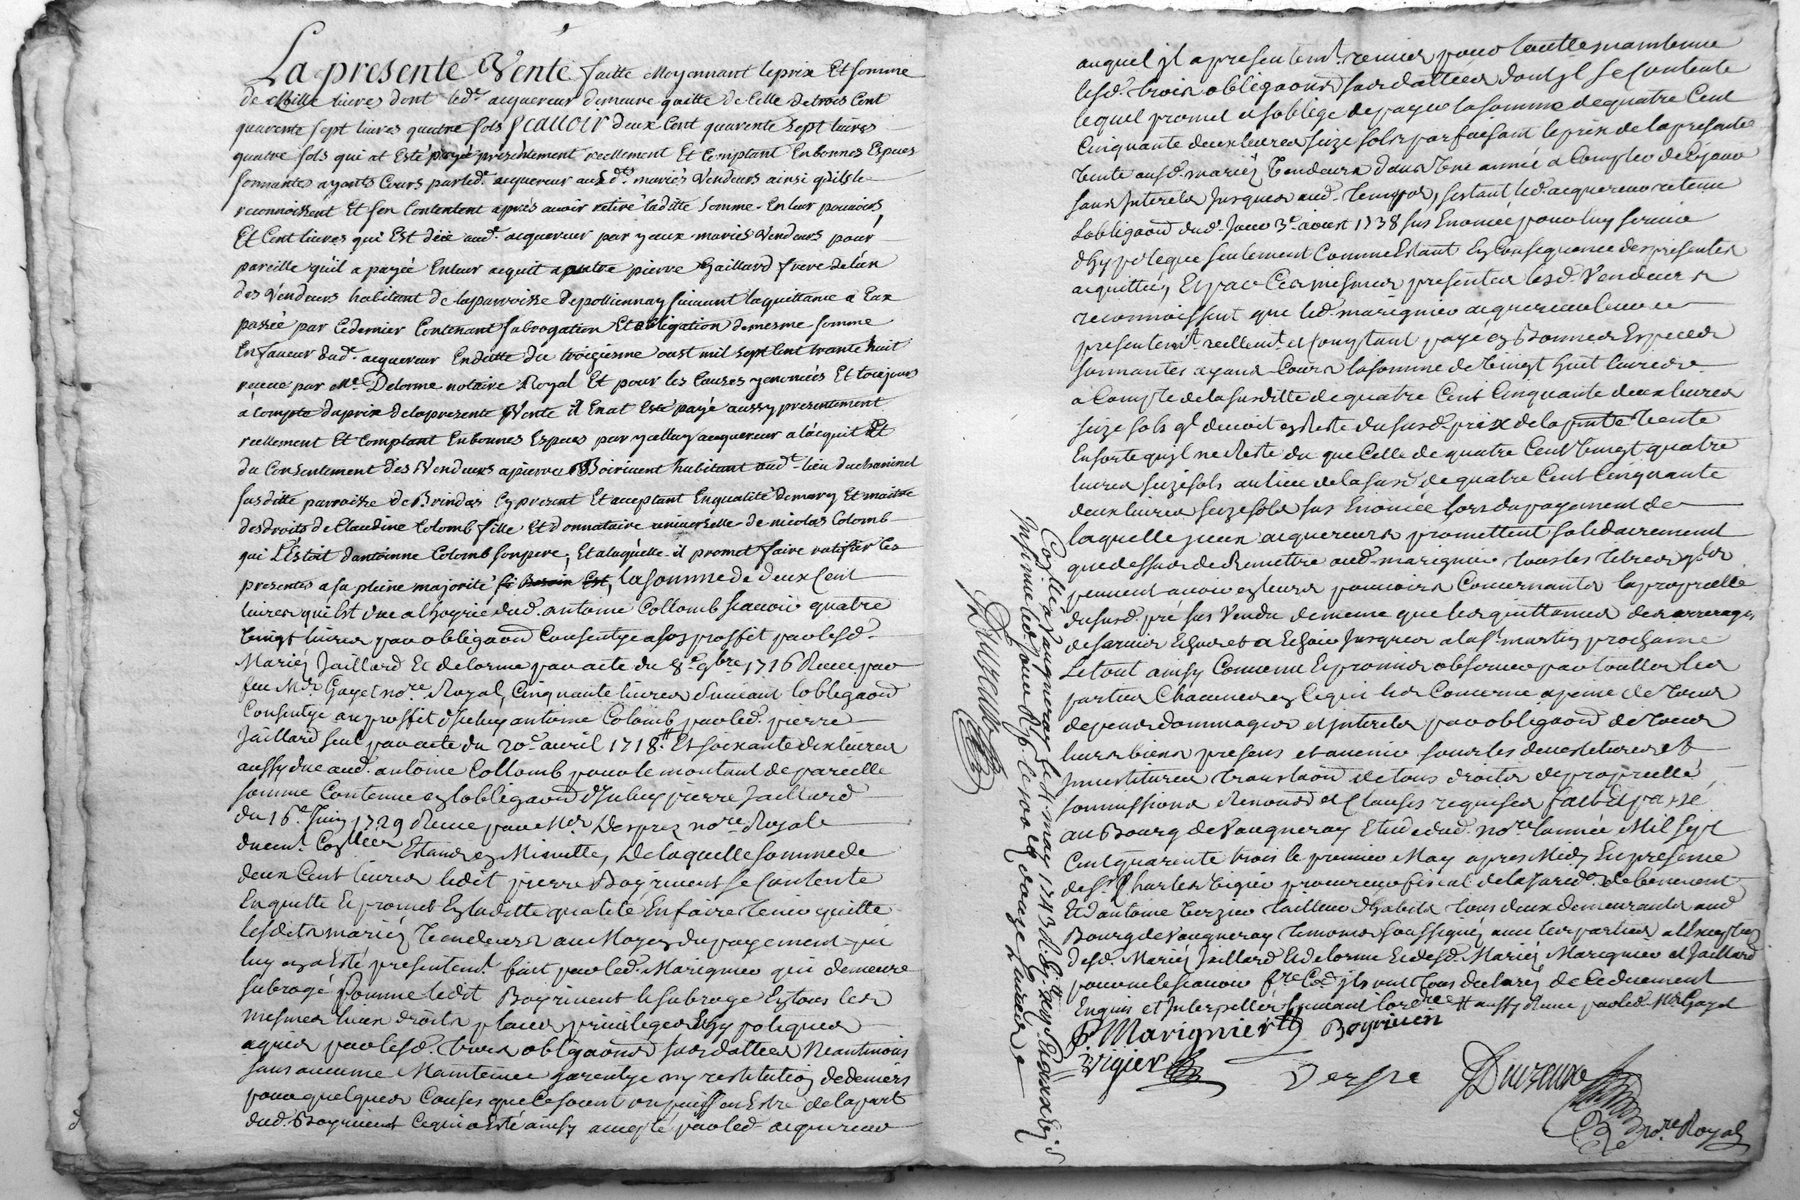 La presente Vente faitte Moyennant le prix Et somme
de Mille livres dont led.t acquereur demeure quitte de Celle de trois Cent
quarente sept livres quatre sols scauoir deux Cent quarente sept livres
quatre sols qui at Esté payé presentement reellement Et Comptant En bonnes Espees
sonnantes ayants Cours par led.t acquereur aux d.ts mariés Vendeurs ainsi qu'ils le
reconnoissent Et s'en Contentent aprés auoir retiré laditte somme En leur pouuoir,
Et Cent livres qui Est düe aud.t acquereur par yceux mariés Vendeurs pour
pareille qu'il a payée En leur acquit a pierre Gaillard frere de l'un
des Vendeurs habitant de la parroisse de pollionnay suiuant la quittance a Eux
passée par Ce dernier Contenant subrogation Et obligation de mesme somme
En faueur dud.t acquereur En datte du troiziesme oust mil sept Cent trante huit
receue par Me. Delorme notaire Royal Et pour les Causes y enoncées Et toujours
à Compte du prix de la presente Vente il En at Esté payé aussy presentement
reellement Et Comptant En bonnes Espees par ycelluy acquereur a l'acquit Et
du Consentement des Vendeurs a pierre Boiriuent habitant aud.t lieu du
susditte parroisse de Brindas Cy present Et acceptant En qualité de mary Et maitre
des droits de Claudine Colomb fille Et donnataire uniuerselle de nicolas Colomb
qui L'Estoit d'antoinne Colomb son pere, Et a laquelle il promet faire ratiffier les
presentes a sa pleine majorité si Besoin Est, la somme de deux Cent
liures qui Est düe a l'hoyrie dud. antoine Collomb scauoir quatre
Vingt liures par obligaõn Consentye a son proffit par lesd.
Mariés Jaillard Et delorme par acte du 8.e 9bre 1716 Receu par
feu Me Gayet nore. Royal, Cinquante liures suiuant l'obligaõn
Consentye au proffit d'Iceluy antoine Colomb par led. pierre
Jaillard seul par acte du 20.e auril 1718 # Et soixante dix liures
aussy düe aud. antoine Collomb pour le montant de pareille
somme Contenue en l'obligaõn d'Iceluy pierre Jaillard
du 16.e Juin 1729 Receue par Me Desprez nore. Royal
Estand en Minuttes, De laquelle somme de
deux Cent liures ledit pierre Boyriuent se Contente
En quitte Et promet En laditte qualité En faire tenir quitte
lesdits mariés Vendeurs au Moyen du payement qui
luy en a Esté presentem.t fait par led. Marignier qui demeure
subrogé Comme ledit Boyriuent le subroge En tous les
mesmes lieux droits places priuileges Et hypoteques
aquis par lesd. trois obligaõns susdattées Neantmoins
sans aucune Maintenue garentye ny restitution de deniers
pour quelques Causes que Ce soient ou puissent Estre de la part
dud. Boyriuent Ce qui a Esté ainsy accepté par led. acquereur
auquel il a presentem.t remis pour toutte maintenue
lesd. trois obligaõns susdattées dont il se Contente
lequel promet et s'oblige de payer la somme de quatre Cent
Cinquante deux liures seize sols parfaisant le prix de la presente
Vente ausd. mariés Vendeurs dans Une année a Compter de Ce jour
sans Interets Jusques aud. Temps, s'estant led. acquereur retenu
L'obligaõn dud. Jour 3.e aoust 1738 sus Enoncée pour luy seruir
d'hypoteque seulement Comme Estant En Consequance des presentes
acquittée, Et par Ces mesmes presentes lesd. Vendeurs
reconnoissent que led. marignier acquereur leur a
presentem.t reellem.t et Comptant payé en Bonnes Especes
sonnantes ayans Cours la somme de Vingt huit liures
a Compte de la susditte de quatre Cent Cinquante deux liures
seize sols qu'il deuoit en Reste du susd. prix de la Vente
En sorte qu'il ne Reste du que Celle de quatre Cent Vingt quatre
liures seize sols au lieu de la susd. de quatre Cent Cinquante
deux liures seize sols sus Enoncée lors du payement de
laquelle yceux acquereurs promettent solidairement
que dessus de Remettre aud. marignier tous les titres qu'ils
peuuent auoir en leurs pouuoirs Concernants la proprietté
du susd. pré sus Vendu de meme que les quittances des arrerages
de seruis Echus et a Echoir Jusques a la St. martin prochaine
Le tout ainsy Conuenu Et promis obseruer par touttes les
parties Chacune en Ce qui les Concerne a peine de tous
depens dommages et Interets par obligaõn de tous
leurs biens presens et auenir sous les deuestitures et
Inuestitures translaõn de tous droits de proprietté
soumissions Renonõns et Clauses requises fait Et passé
au Bourg de Vaugneray Etude dud. nore. l'année Mil sept
Cent quarente trois le premier May apres Midy En presence
de Sr. Charles Vigier procureur fiscal de la Jurid.on de
Et d'antoine Verzier tailleur d'habits tous deux demeurants aud.
Bourg de Vaugneray temoins soussignez auec les parties a l'exception
desd. Mariés Jaillard Et delorme Et desd. Mariés Marignier et Jaillard
pour ne le scauoir fre. Ce que ils ont Tous declaré de Ce duement
Enquis et Interpellés suiuant l'ord.ce # aussy Receu par led. Me Gayet
P. Marignier Boyriuen
Vigier Verzie Duizeune
nore. Royal
Con.lé a Vaugneray le 11 may 1743
Insinué led. Jour Rx. le 100.e d. douze liures